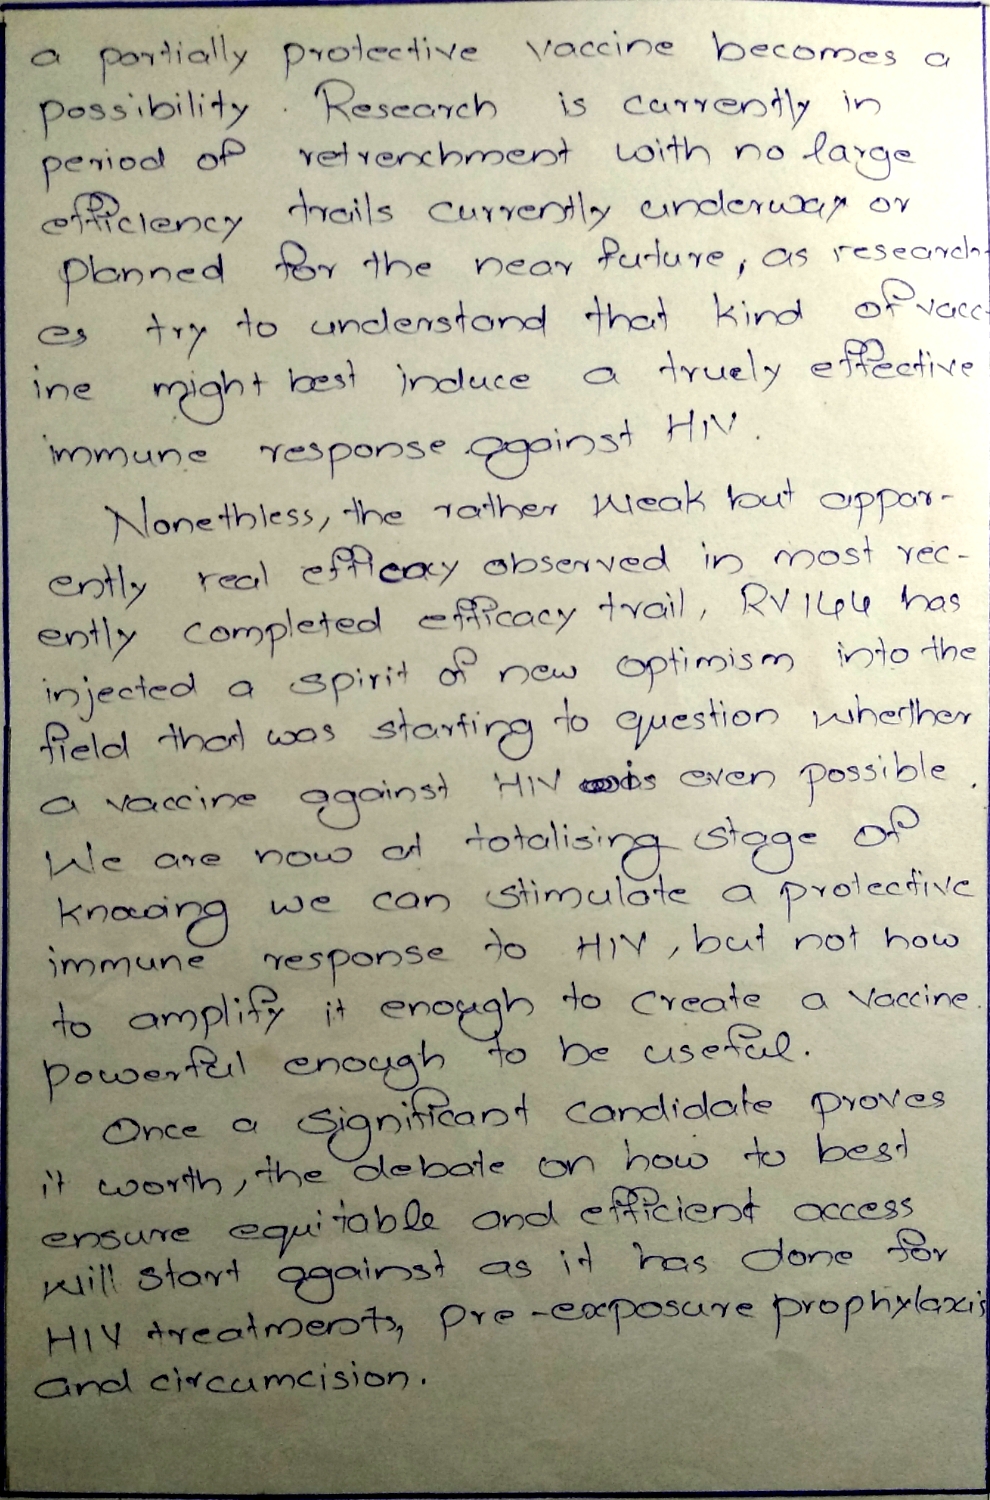 a partially protective vaccine becomes a
possibility. Research is currently in
period of retrenchment with no large
efficiency trails currently underway or
planned for the near future, as research-
es try to understand that kind of vacc-
ine might best induce a truely effective
immune response against HIV.
Nonethless, the rather weak but appar-
ently real efficacy observed in most rec-
ently completed efficacy trail, RV144 has
injected a spirit of new optimism into the
field that was starting to question whether
a vaccine against HIV is even possible.
We are now at totalising stage of
knowing we can stimulate a protective
immune response to HIV, but not how
to amplify it enough to create a vaccine.
powerful enough to be useful.
Once a significant candidate proves
it worth, the debate on how to best
ensure equitable and efficient access
will start against as it has done for
HIV treatments, pre-exposure prophylaxis
and circumcision.